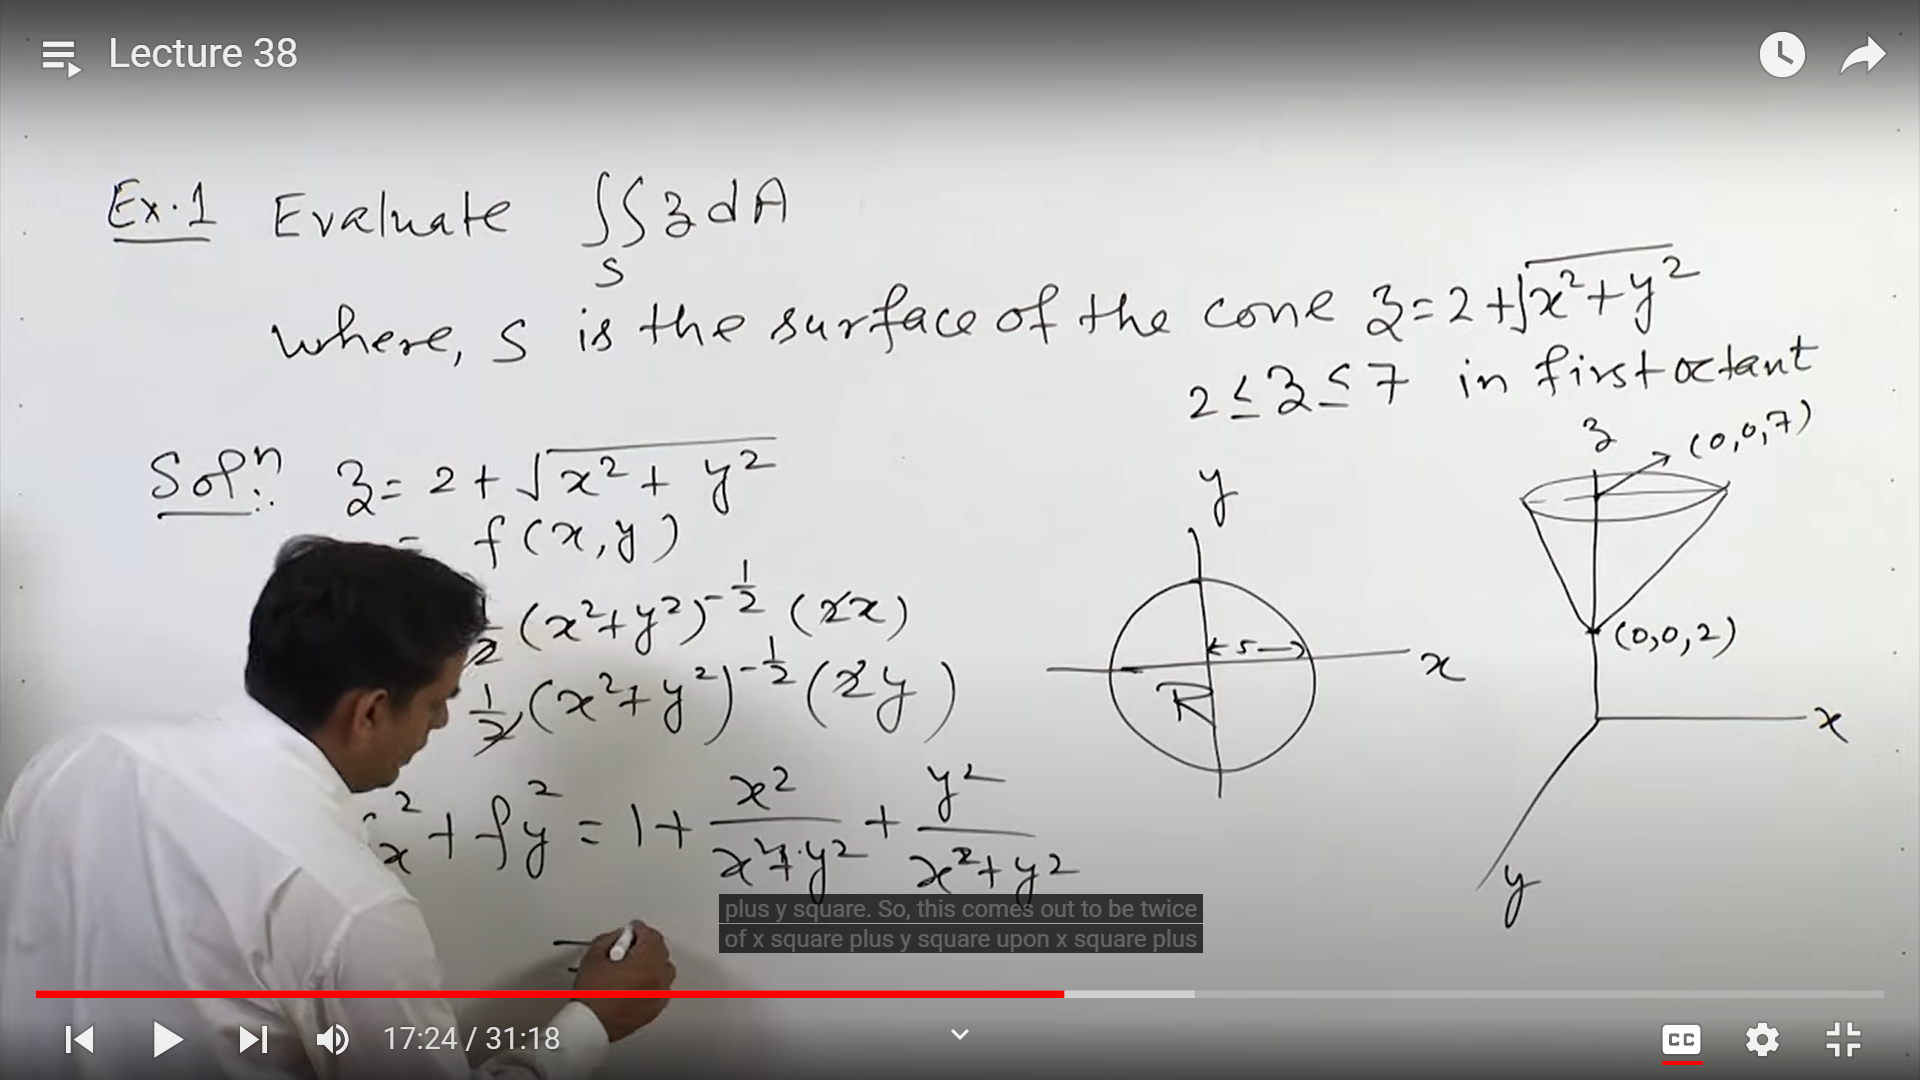 Lecture 38
Ex.1 Evaluate ∫∫_S z dA
where, S is the surface of the cone z = 2 + √(x² + y²)
2 ≤ z ≤ 7 in first octant
Solⁿ: z = 2 + √(x² + y²)
= f(x, y)
(x² + y²)^(-1/2) (2x)
1/2 (x² + y²)^(-1/2) (2y)
x² + fy² = 1 + x²/(x² + y²) + y²/(x² + y²)
y
5
x
R
z
(0,0,7)
(0,0,2)
x
y
plus y square. So, this comes out to be twice
of x square plus y square upon x square plus
17:24 / 31:18
CC